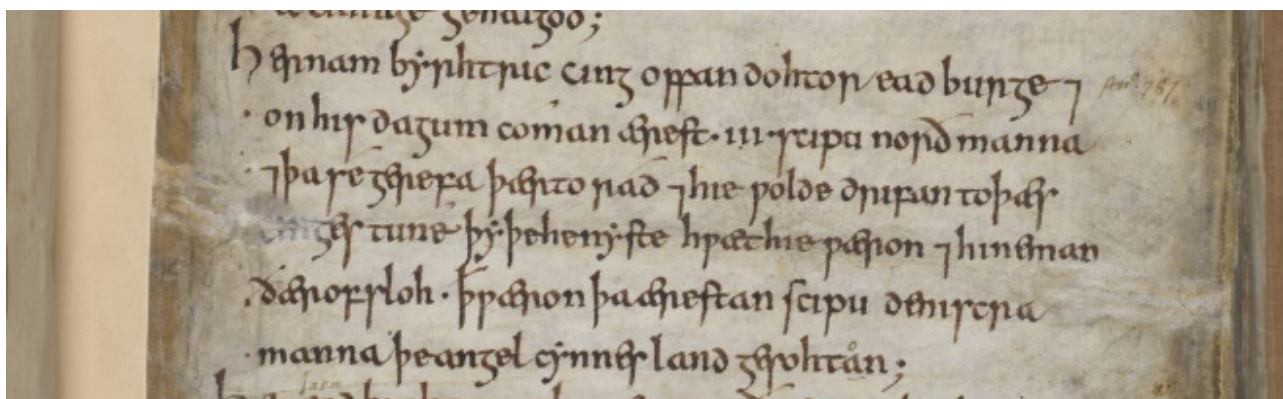 gehalgod;
Her nam byrhtric cing offan dohtor eadburge ⁊
on his dagum coman ærest .iii. scipu norðmanna
⁊ þa se gerefa þær to rad ⁊ hie ƿolde drifan to þæs
cinges tune þy þe he nyste hƿæt hie ƿæron ⁊ hine man
ðær ofsloh. ꝥ ƿæron þa ærestan scipu deniscra
manna þe angel cynnes land gesohtan;